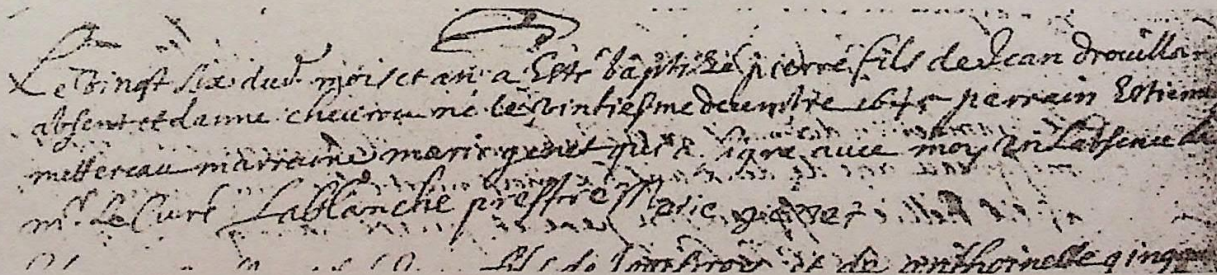 Le vingt six dud. mois et an a Esté baptizé pierre fils de Jean drouillar
absent et danne cheuron né le vintiesme decembre perrain Estienne
mettereau marraine marie genet qui a signé auec moy en labsence de
mr. Le Curé Lablanche prestre Marie genet
fils de et de anthoinette